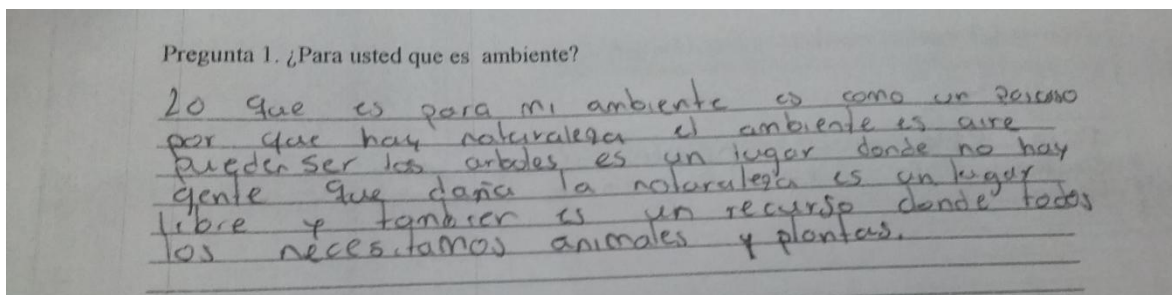 Pregunta 1. ¿Para usted que es ambiente?
Lo que es para mi ambiente es como un
por que hay naturaleza el ambiente es aire
pueden ser los arboles, es un lugar donde no hay
gente que daña la naturaleza es un lugar
libre y tambien es un recurso donde todos
los necesitamos animales y plantas.